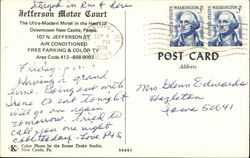 Stayed in Rm # here
Jefferson Motor Court
The Ultra-Modern Motel in the Heart of
Downtown New Castle, Penna.
107 N. JEFFERSON ST.
AIR CONDITIONED
FREE PARKING & COLOR TV
Area Code 412-658-9093
POST CARD
Address
Friday p.m.
Having a grand
time. Going out with
Irene to eat tonight
will go on again
tomorrow. Tried to
call you one night
Mrs Glenn Edwards
Hazleton
Iowa 50641
Color Photo by the Ernest Drake Studio,
New Castle, Penna.